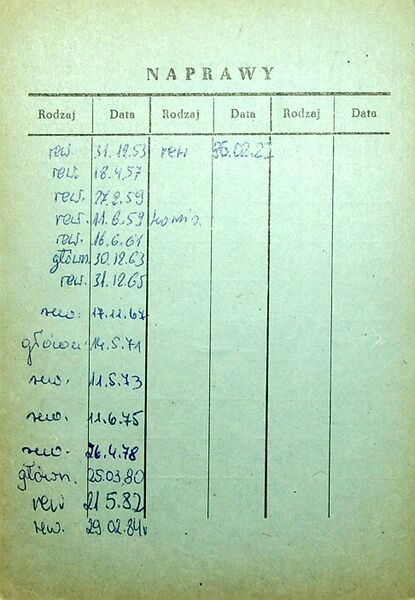 NAPRAWY
Rodzaj Data Rodzaj Data Rodzaj Data
rew. 31.12.53 rew 86.02.
rew. 18.4.57
rew. 27.2.59
rew. 11.6.59 komis.
rew. 16.6.61
główn. 30.12.63
rew. 31.12.65
rew. 17.11.67
główn. 14.5.71
rew. 11.5.73
rew. 11.6.75
rew. 26.4.78
główn. 25.03.80
rew 21 5.82
rew. 29.02.84r